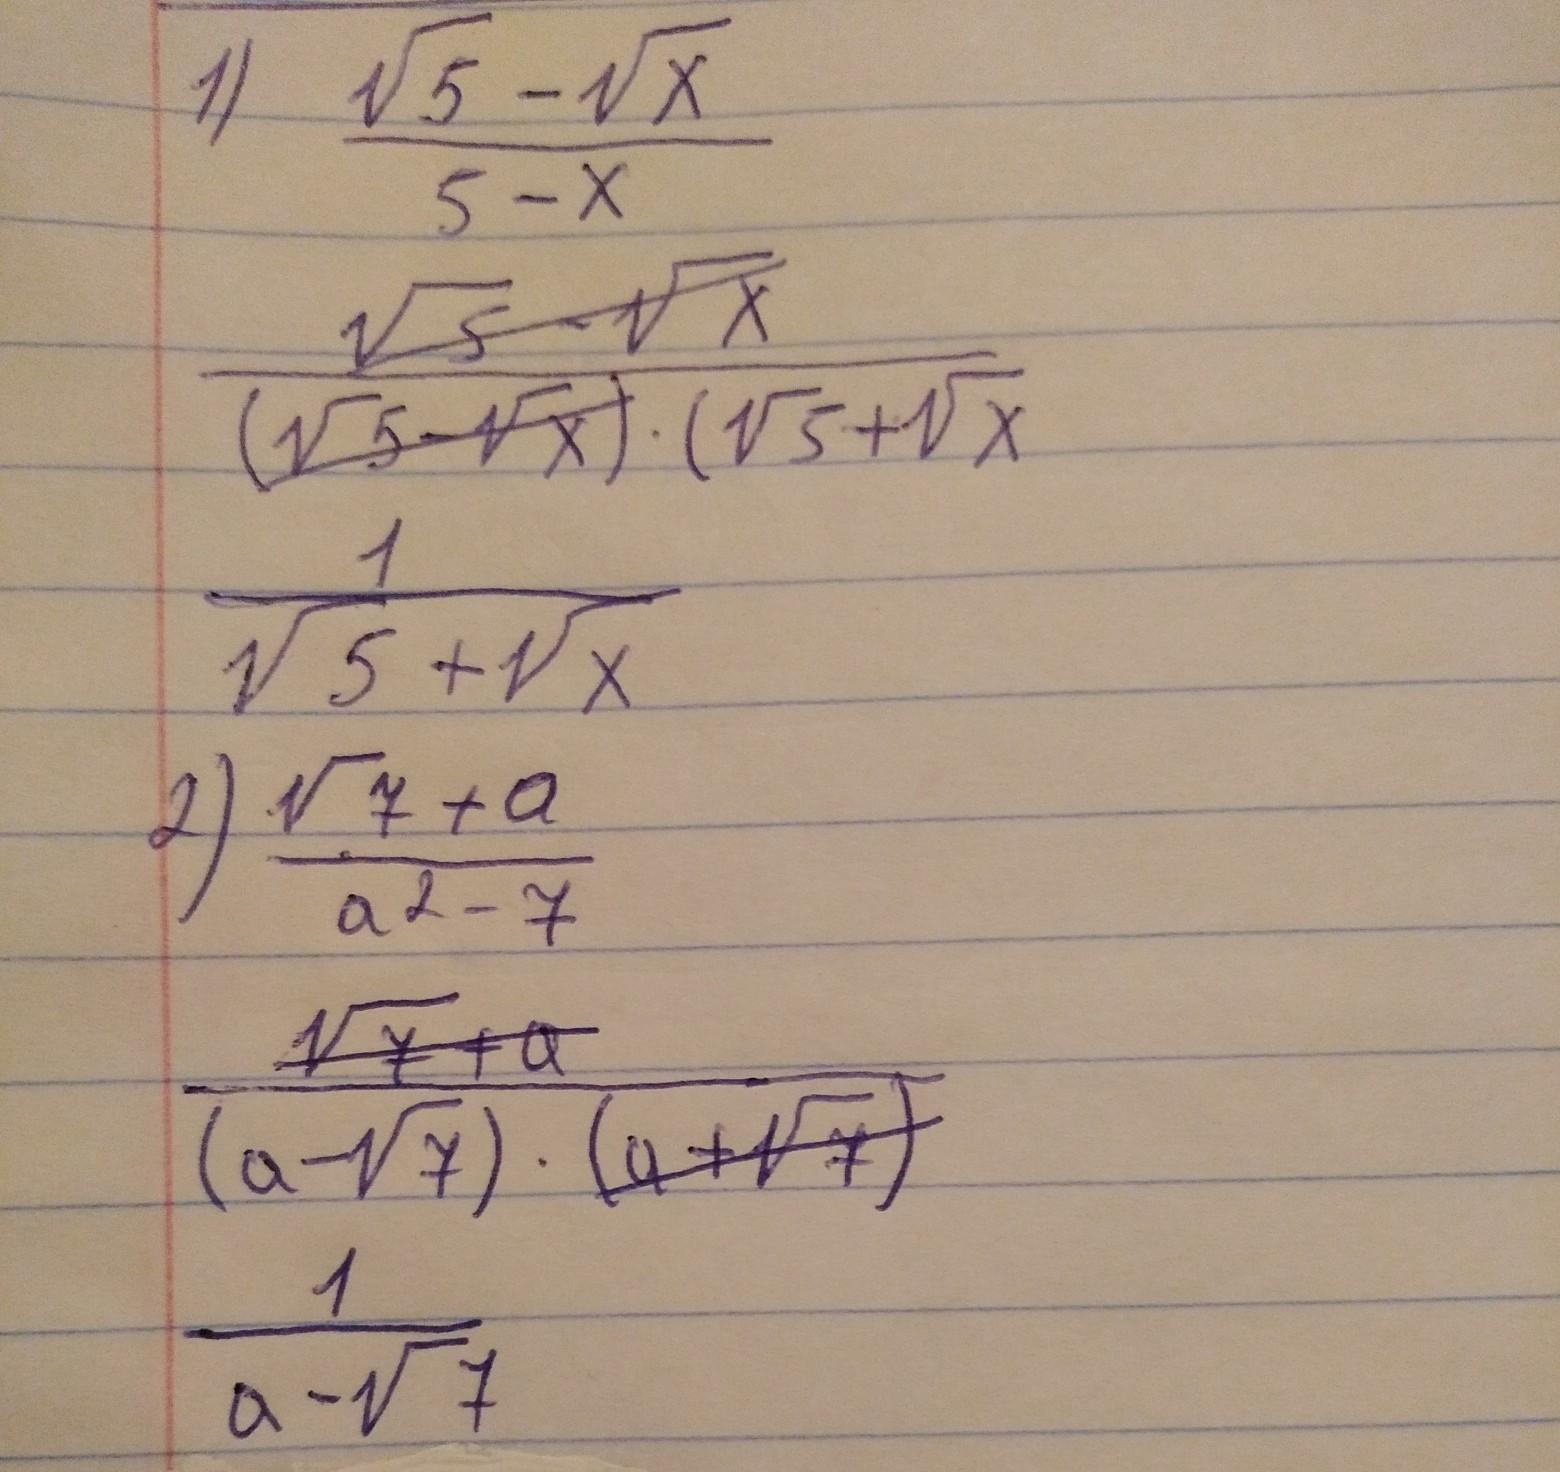 1) √5 - √x
5 - x
√5 - √x
(√5 - √x) · (√5 + √x
1
√5 + √x
2) √7 + a
a² - 7
√7 + a
(a - √7) · (a + √7)
1
a - √7